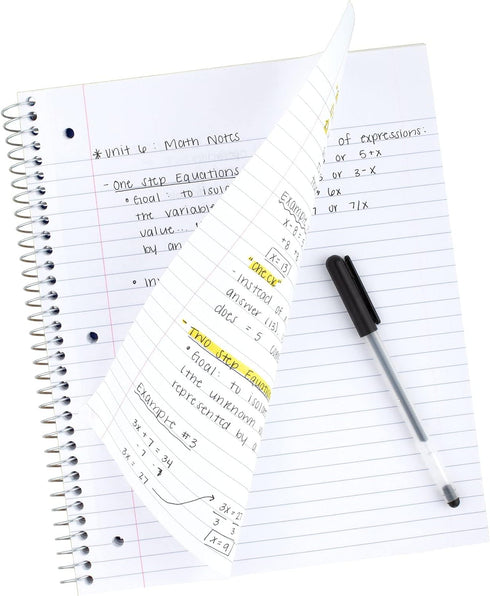 * Unit 6: Math Notes
- One Step Equations
• Goal: to
the variable
value...
by an
of expressions:
or 5+x
or 3-x
6x
or 7/x
x-8=5
+8 +8
x=13
"Check"
- Instead of
answer (13)
does = 5
- Two Step Equations
• Goal: to
(the unknown
represented by a
Example #3
3x + 7 = 34
- 7 - 7
3x = 27
3 3
x=9